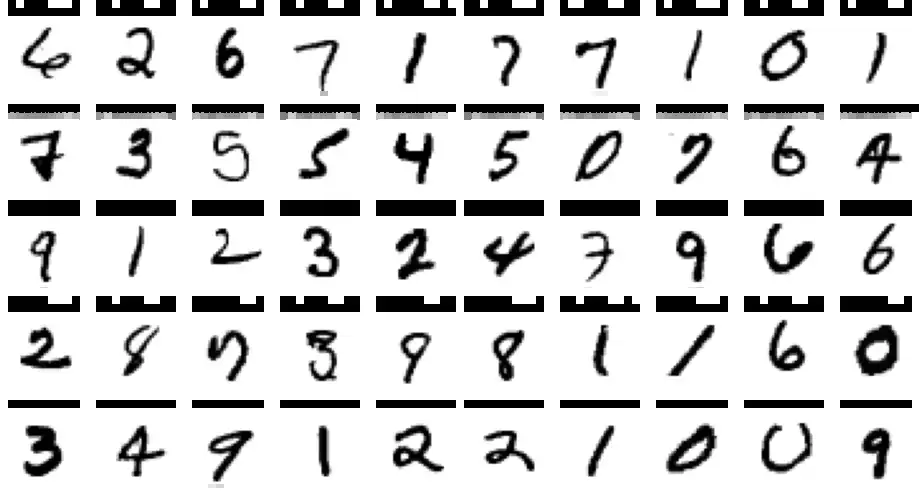 6 2 6 7 1 7 7 1 0 1
7 3 5 5 4 5 0 7 6 4
9 1 2 3 2 4 7 9 6 6
2 8 7 3 9 8 1 1 6 0
3 4 9 1 2 2 1 0 0 9